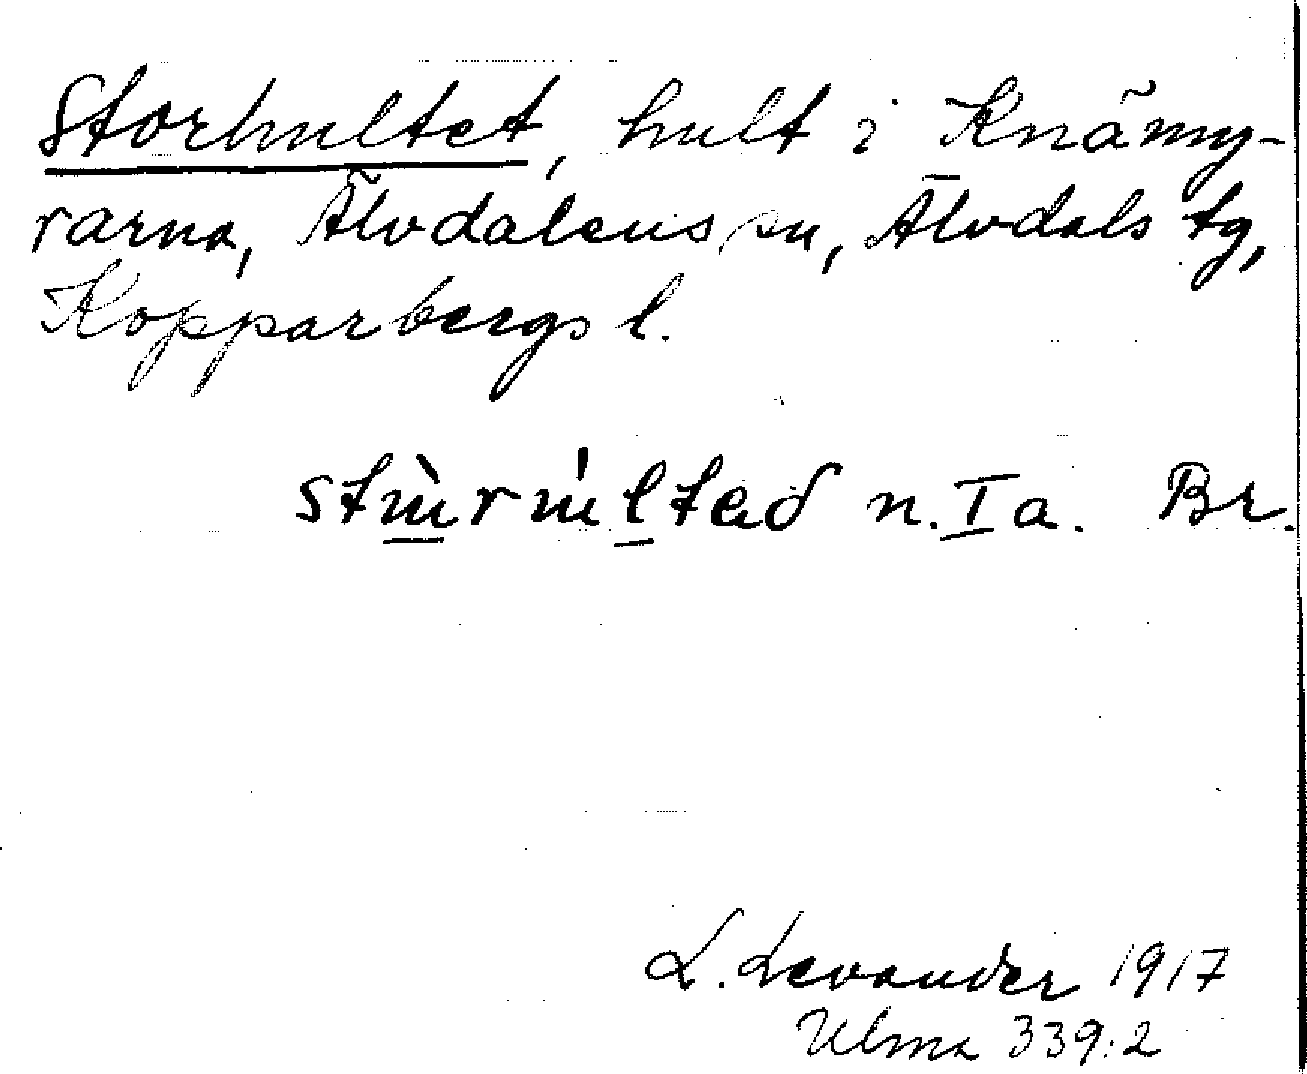 Storhultet, hult i Knämy-
rarna, Älvdalens sn, Älvdals tg,
Kopparbergs l.
n. I a. Br.
L. Levander 1917
Ulma 339:2